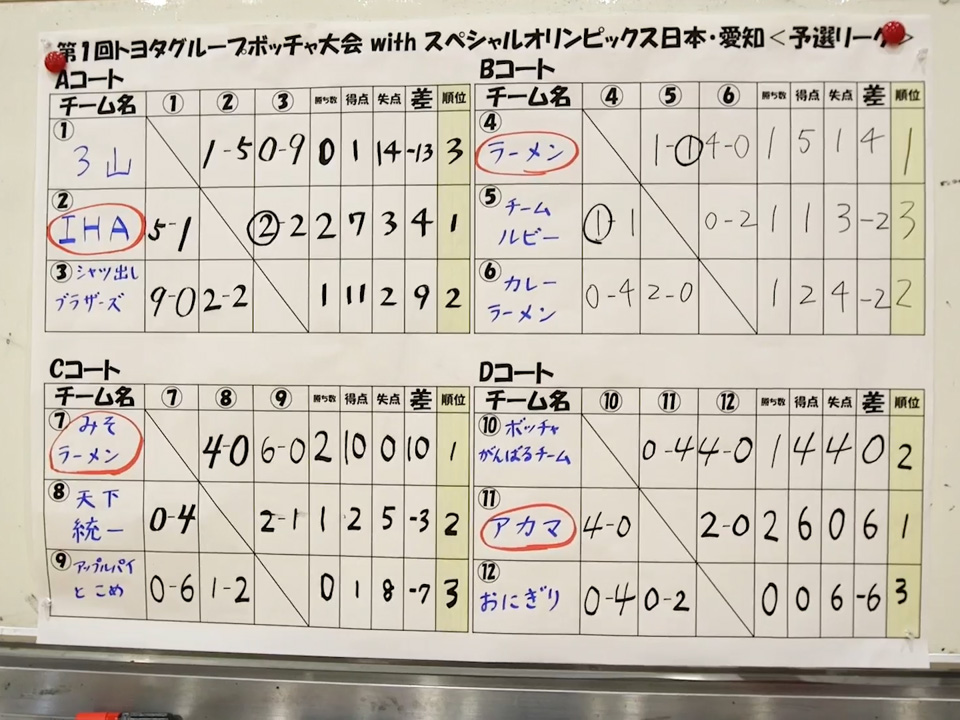 第1回トヨタグループボッチャ大会 with スペシャルオリンピックス日本・愛知<予選リーグ>
Aコート
チーム名 ① ② ③ 勝ち数 得点 失点 差 順位
① 3山 1-5 0-9 0 1 14 -13 3
② IHA 5-1 ②-2 2 7 3 4 1
③ シャツ出し
ブラザーズ 9-0 2-2 1 11 2 9 2
Bコート
チーム名 ④ ⑤ ⑥ 勝ち数 得点 失点 差 順位
④ ラーメン 1-① 4-0 1 5 1 4 1
⑤ チーム
ルビー ①-1 0-2 1 1 3 -2 3
⑥ カレー
ラーメン 0-4 2-0 1 2 4 -2 2
Cコート
チーム名 ⑦ ⑧ ⑨ 勝ち数 得点 失点 差 順位
⑦ みそ
ラーメン 4-0 6-0 2 10 0 10 1
⑧ 天下
統一 0-4 2-1 1 2 5 -3 2
⑨ アップルパイ
とこめ 0-6 1-2 0 1 8 -7 3
Dコート
チーム名 ⑩ ⑪ ⑫ 勝ち数 得点 失点 差 順位
⑩ ボッチャ
がんばるチーム 0-4 4-0 1 4 4 0 2
⑪ アカマ 4-0 2-0 2 6 0 6 1
⑫ おにぎり 0-4 0-2 0 0 6 -6 3